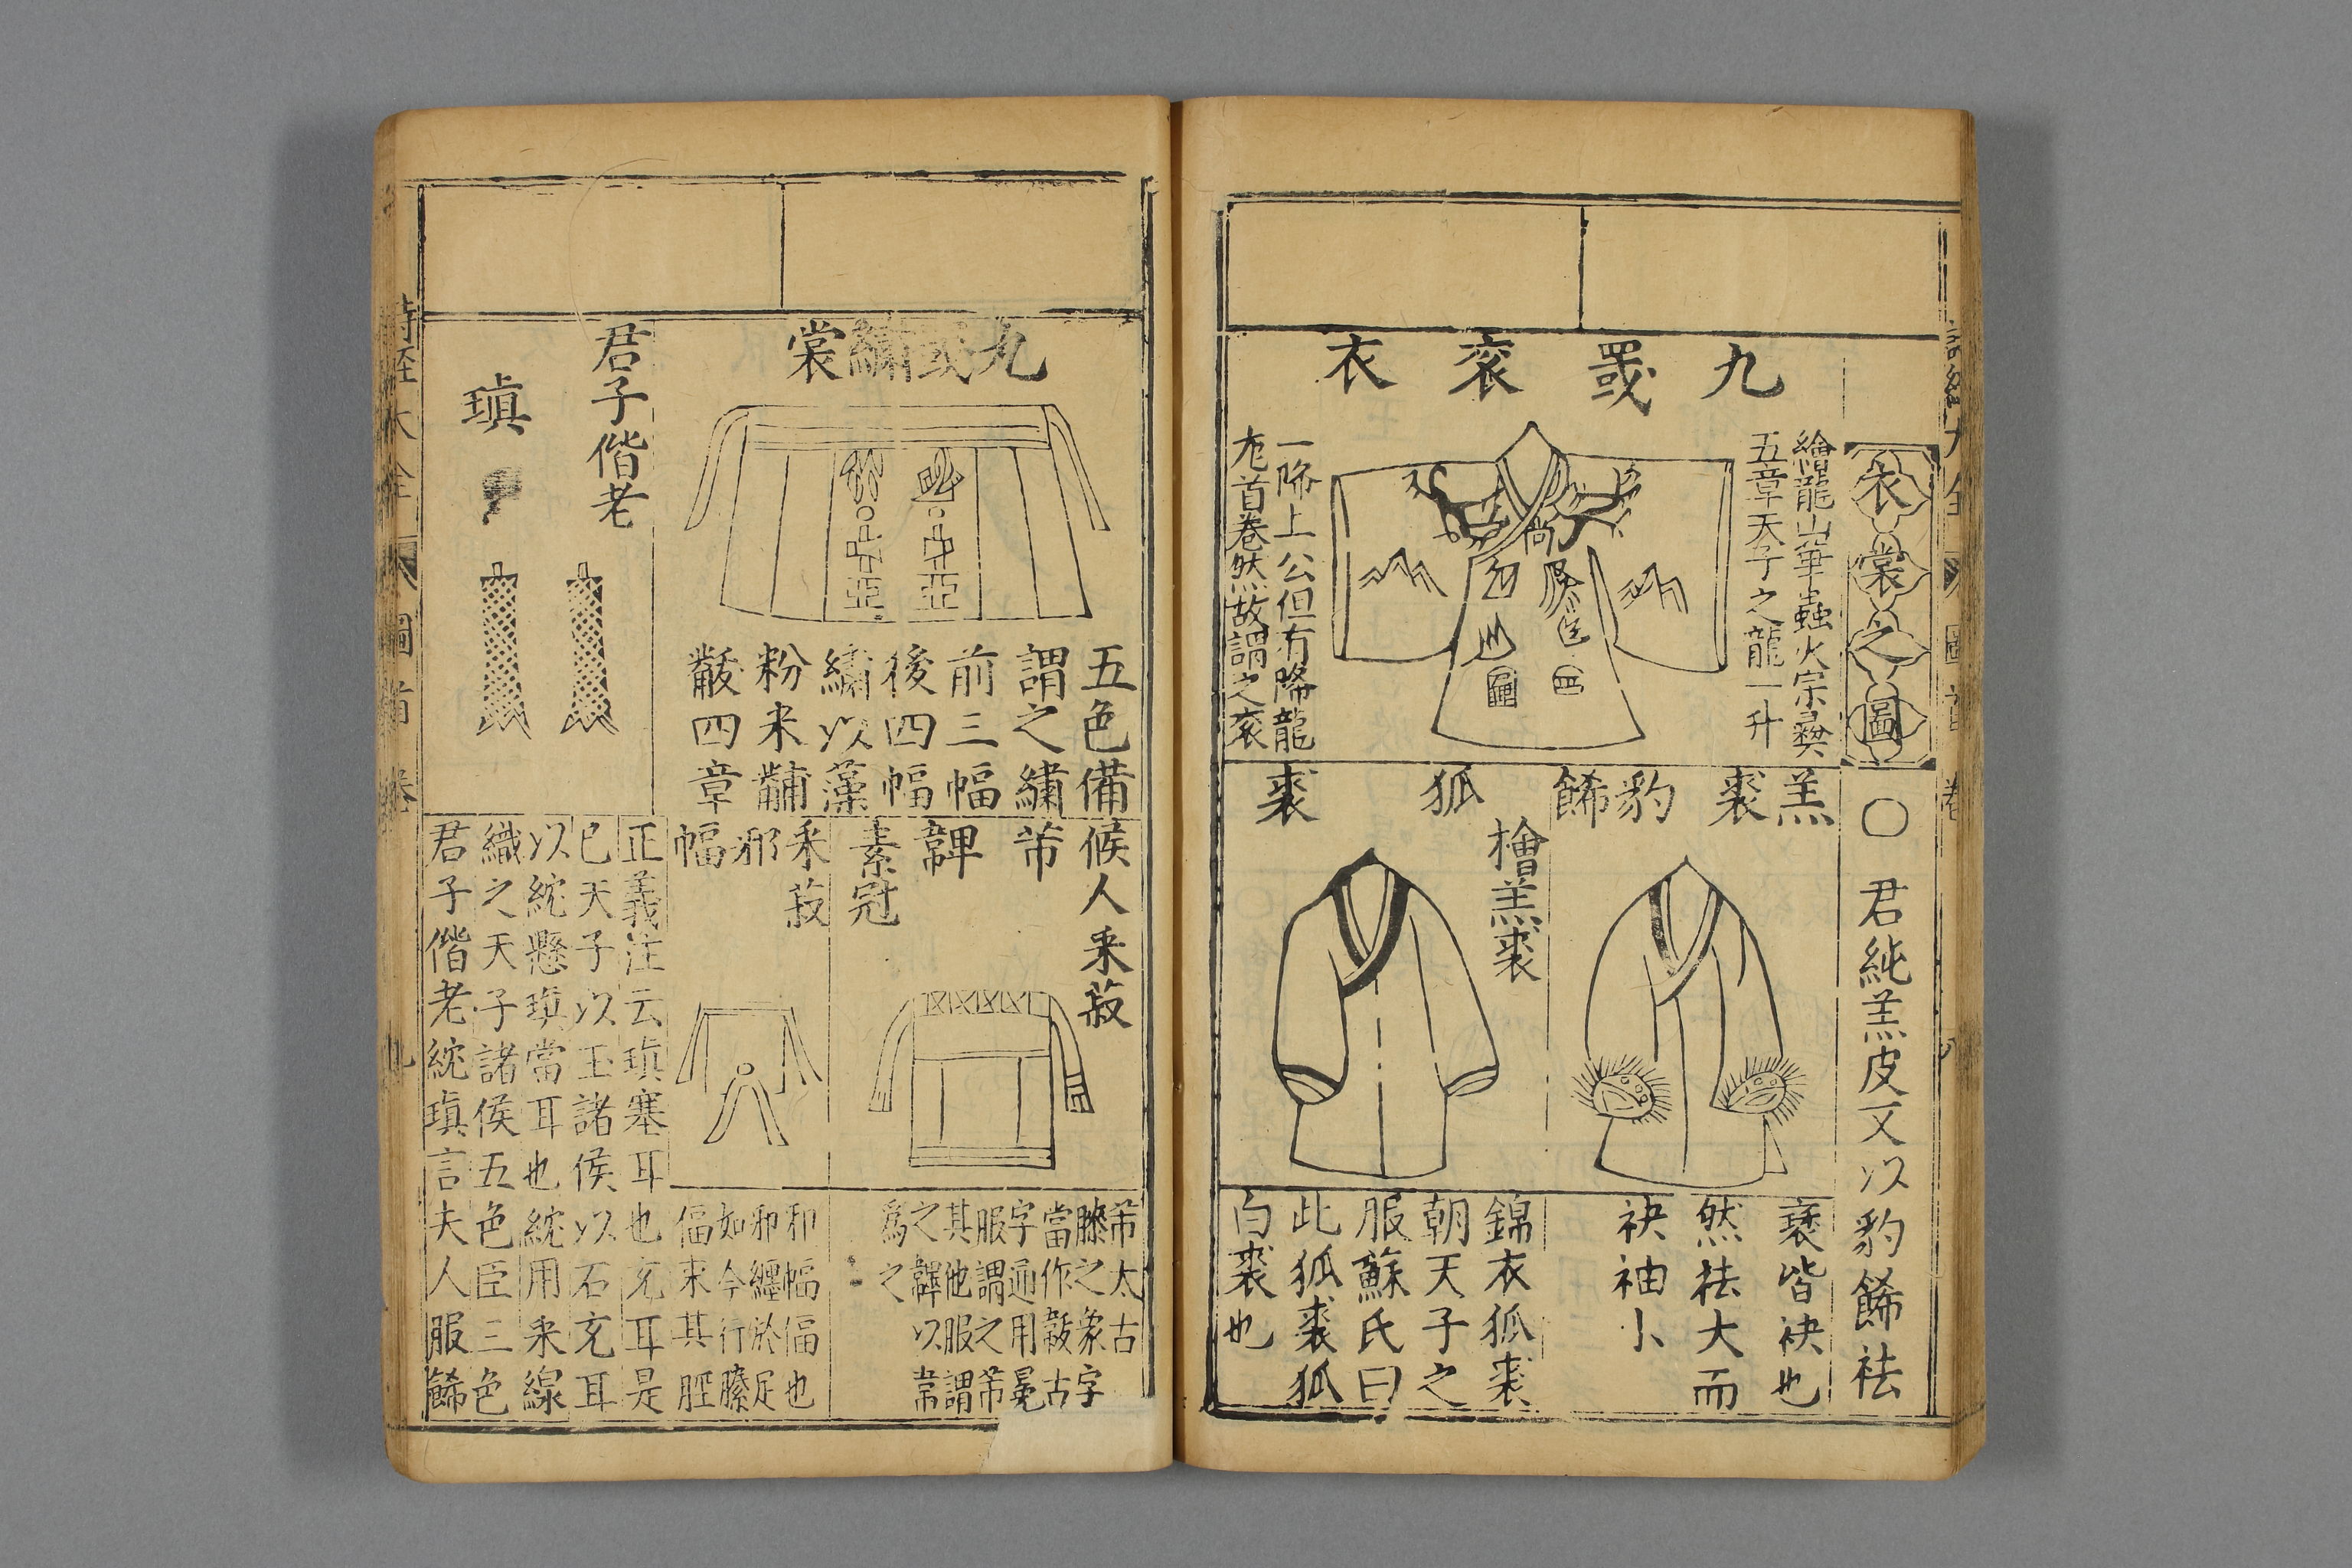 衣裳之圖
九罭袞衣
繪龍山華蟲火宗彝
五章天子之龍一升
一降上公但有降龍
龙首卷然故謂之袞
○君純羔皮文以豹餙袪
羔裘
豹餙
褎皆袂也
然袪大而
袂袖小
狐裘
檜羔裘
錦衣狐裘
朝天子之
服蘇氏曰
此狐裘狐
白裘也
九罭繡裳
五色備
謂之繡
前三幅
後四幅
繡以藻
粉米黼
黻四章
君子偕老
瑱
候人釆菽
芾
韠
素冠
芾太古
膝之象字
當作韍古
字通用冕
服謂之芾
其他服謂
之韠以韋
爲之
釆菽
邪幅
和幅偪也
邪纏於足
如今行縢
偪束其脛
正義注云瑱塞耳也充耳是
已天子以玉諸侯以石充耳
以紞懸瑱當耳也紞用釆線
織之天子諸侯五色臣三色
君子偕老紞瑱言夫人服餙
詩經大全 圖 首卷 九